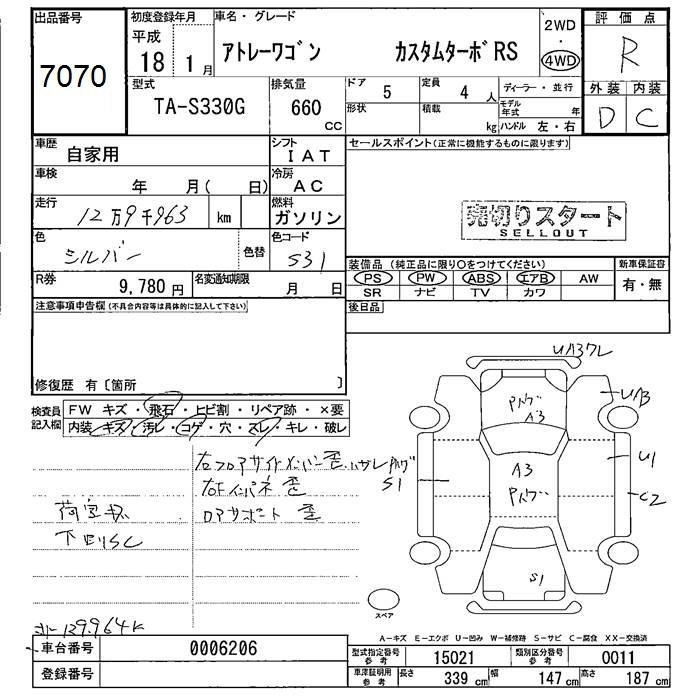 出品番号
7070
初度登録年月
平成
18 1月
車名・グレード
アトレーワゴン カスタムターボRS
2WD
・
4WD
評価点
R
外装 内装
D C
型式
TA-S330G
排気量
660
CC
ドア
5
定員
4 人
ディーラー・並行
形状
積載
kg
モデル年式 年
ハンドル 左・右
車歴
自家用
シフト
I A T
車検
年 月( 日)
冷房
A C
走行
12万9千963 km
燃料
ガソリン
色
シルバー
色替
色コード
S31
R券
9,780円
名変通知期限
月 日
セールスポイント(正常に機能するものに限ります)
売切りスタート
SELLOUT
装備品(純正品に限り○をつけてください)
新車保証書
PS PW ABS エアB AW
有・無
SR ナビ TV カワ
後日品
注意事項申告欄(不具合内容等は具体的に記入して下さい)
修復歴 有〔箇所 〕
検査員記入欄
FW キズ・飛石・ヒビ割・リペア跡・×要
内装・キズ・汚レ・コゲ・穴・スレ・キレ・破レ
右フロアサイドメンバー歪
右Fインパネ 歪
ロアサポート 歪
下回りSC
129.964K
UB
A3
S1
A3
U1
C2
S1
スペア
A－キズ E－エクボ U－凹み W－補修跡 S－サビ C－腐食 XX－交換済
車台番号
0006206
登録番号
型式指定番号 参考
15021
類別区分番号 参考
0011
車庫証明用 参考
長さ 339 cm 幅 147 cm 高さ 187 cm